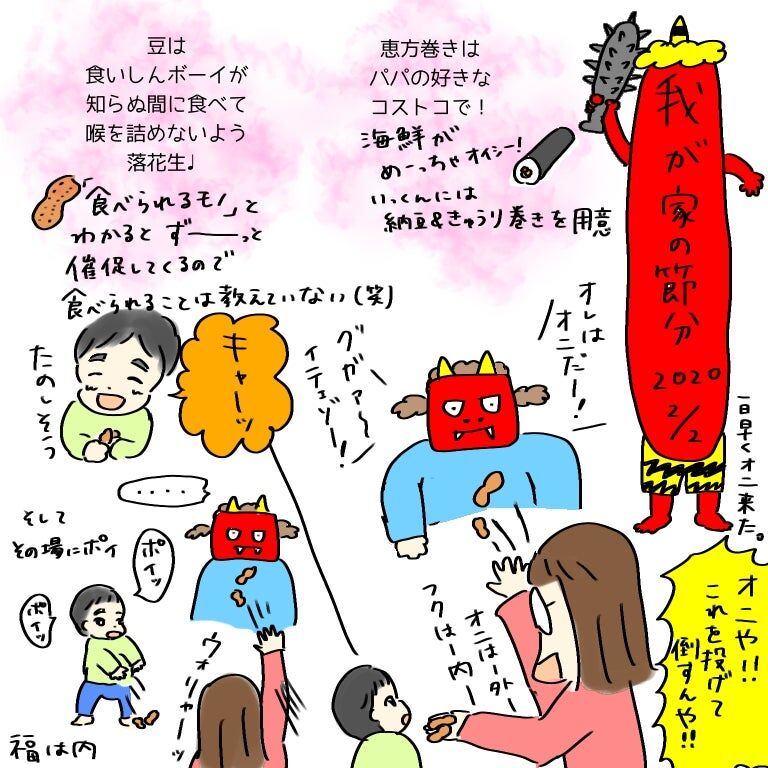 我が家の節分
2020
2/2
一日早くオニ来た。
恵方巻きは
パパの好きな
コストコで!
海鮮が
めーっちゃオイシー!
いっくんには
納豆&きゅうり巻きを用意
豆は
食いしんボーイが
知らぬ間に食べて
喉を詰めないよう
落花生♩
「食べられるモノ」と
わかると ずーーっと
催促してくるので
食べられることは教えていない(笑)
オニや!!
これを投げて
倒すんや!!
オレは
オニだー!
オニはー外ー
フクはー内ー
グガァ〜
イテェゾー!
キャーッ
たのしそう
‥‥
ウォリャーッ
そして
その場にポイ
ポイッ
ポイッ
福は内